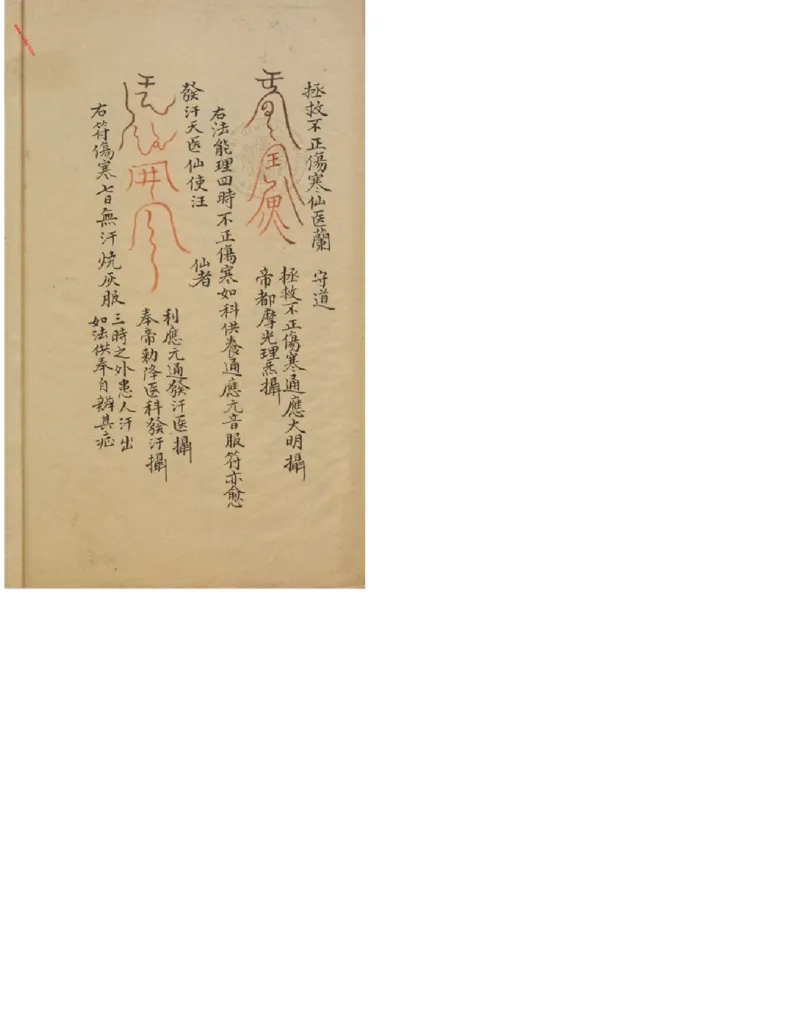 拯救不正傷寒仙医蘭 守道
拯救不正傷寒通應大明攝
帝都摩光理炁攝
右法能理四時不正傷寒如科供養通應元音服符亦愈
發汗天医仙使汪 仙者
利應元通發汗医攝
奉帝勅降医科發汗攝
右符傷寒七日無汗燒灰服
三時之外患人汗出
如法供奉自辨其疟